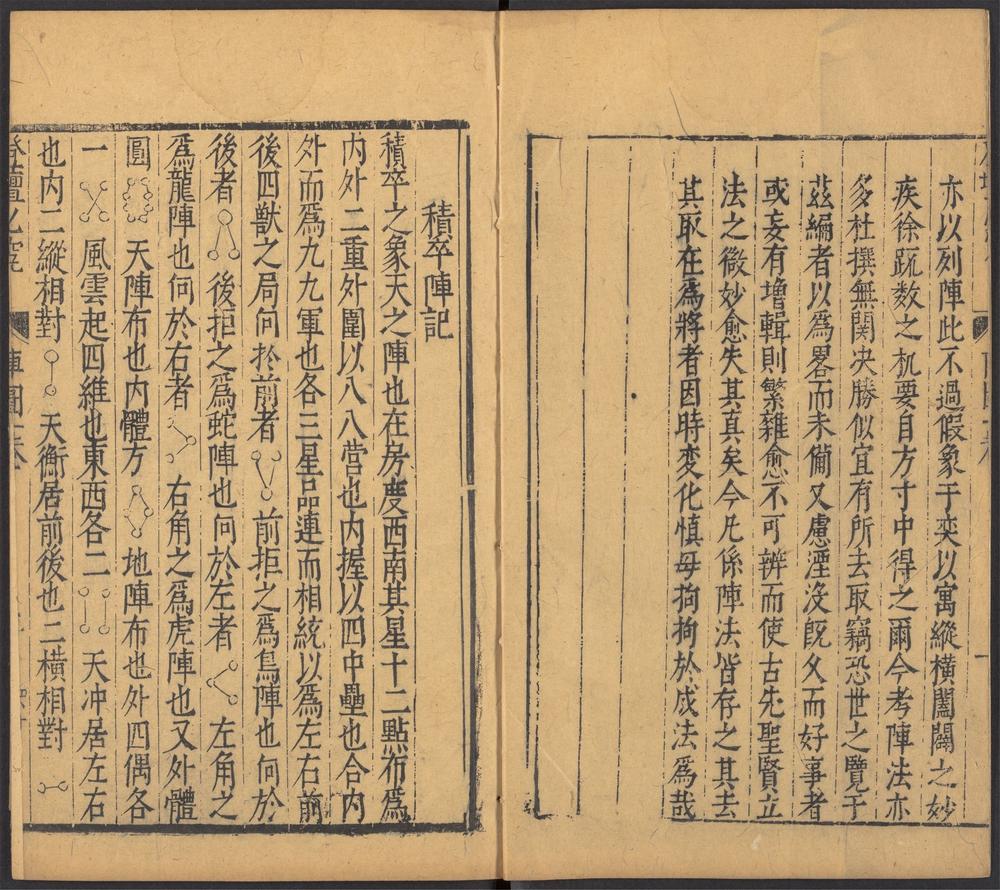 亦以列陣此不過假象于奕以寓縱橫闔闢之妙
疾徐䟽数之机要自方寸中得之爾今考陣法亦
多杜撰無関决勝似宜有所去取竊恐世之覽于
茲編者以爲畧而未備又慮湮没既久而好事者
或妄有增輯則繁雜愈不可辨而使古先聖賢立
法之微妙愈失其真矣今凡係陣法皆存之其去
其取在爲將者因時变化慎毋拘拘於成法爲哉
積卒陣記
積卒之象天之陣也在房度西南其星十二點布爲
内外二重外圍以八八營也内握以四中壘也合内
外而爲九九軍也各三星品連而相統以爲左右前
後四獸之局向於前者 前拒之爲鳥陣也向於
後者 後拒之爲蛇陣也向於左者 左角之
爲龍陣也向於右者 右角之爲虎陣也又外體
圓 天陣布也内體方 地陣布也外四偶各
一 風雲起四維也東西各二 天冲居左右
也内二縱相對 天衡居前後也二橫相對
陣圖一卷